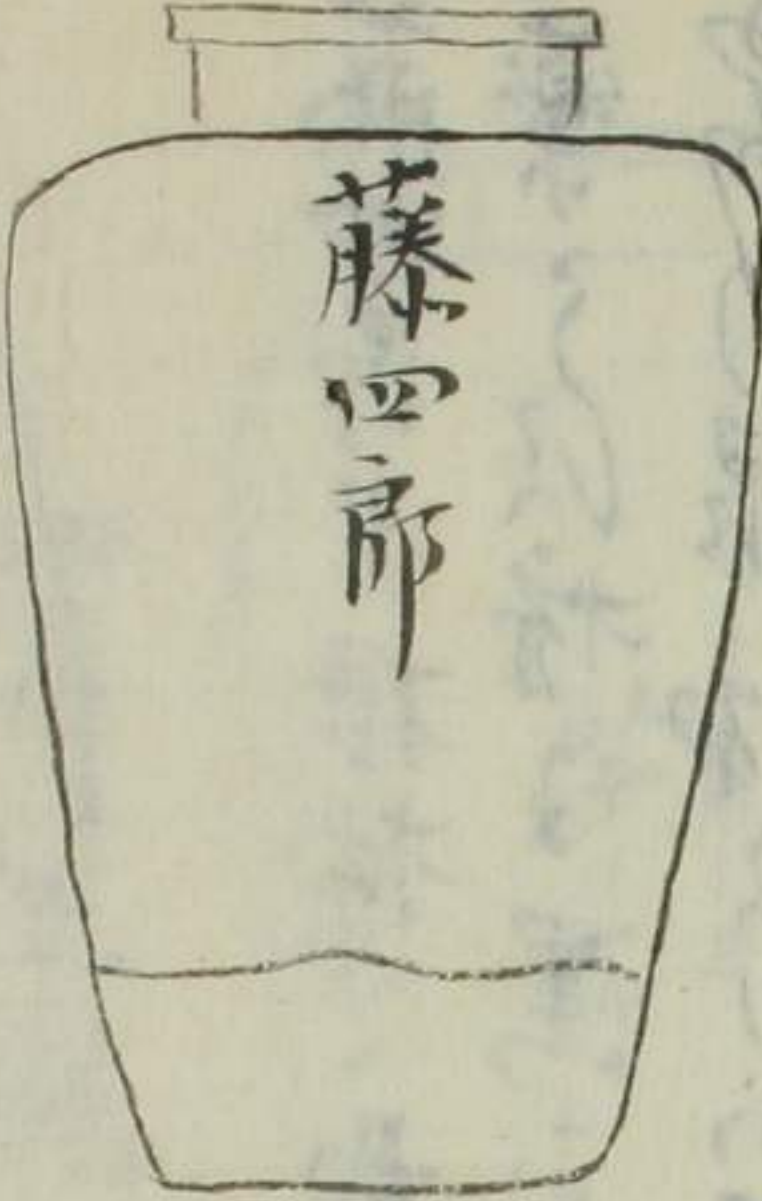 藤四郎